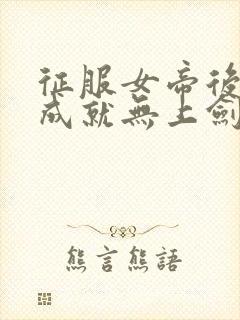 征服女帝後
成就無上劍
熊言熊語